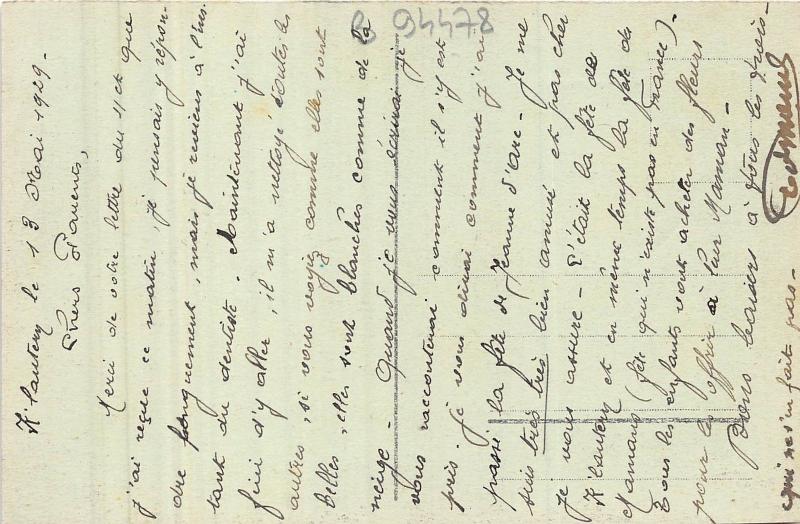 K'lautern le 13 Mai 1929.
Chers Parents,
Merci de votre lettre du 11 et que
j'ai reçue ce matin, je pensais y répon-
dre longuement, mais je reviens à l'ins-
tant du dentiste. Maintenant j'ai
fini d'y aller, il m'a nettoyé toutes les
autres, si vous voyiez comme elles sont
belles, elles sont blanches comme de la
neige - Quand je vous écrirai je
vous raconterai comment il s'y est
pris, je vous dirai comment j'ai
passé la fête de Jeanne d'Arc - Je me
suis très très bien amusé et pas cher
je vous assure - C'était la fête de
K'lautern et en même temps la fête des
Mamans (fête qui n'existe pas en France).
Tous les enfants vont acheter des fleurs
pour les offrir à leur Maman -
Bons baisers à tous les trois -
qui ne s'en fait pas -
B 94478